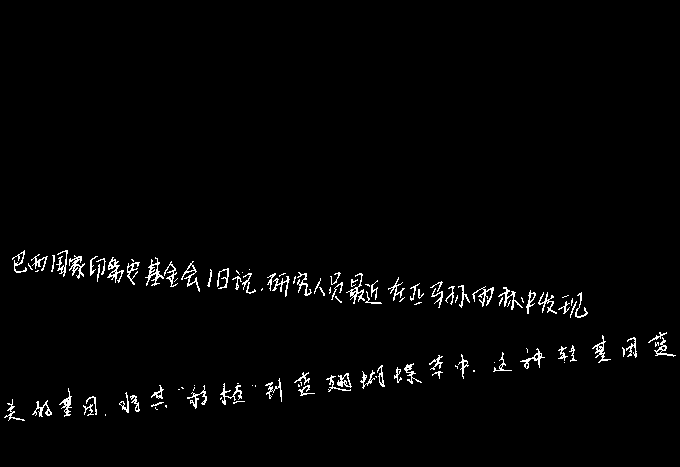 巴西国家印第安基金会1日说,研究人员最近在亚马孙雨林中发现
关的基因,将其“移植”到蓝翅蝴蝶草中.这种转基因蓝